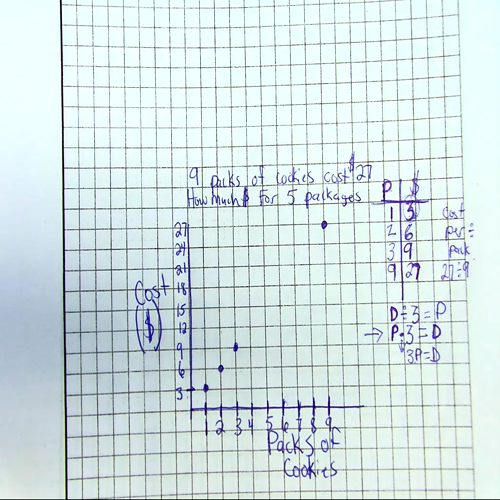 9 packs of cookies cost $27
How much $ for 5 packages
P $
1 3
2 6
3 9
9 27
cost
per ÷
pack
27÷9
D÷3=P
→ P·3=D
3P=D
27
24
21
18
15
12
9
6
3
Cost
($)
1 2 3 4 5 6 7 8 9
Packs of
Cookies